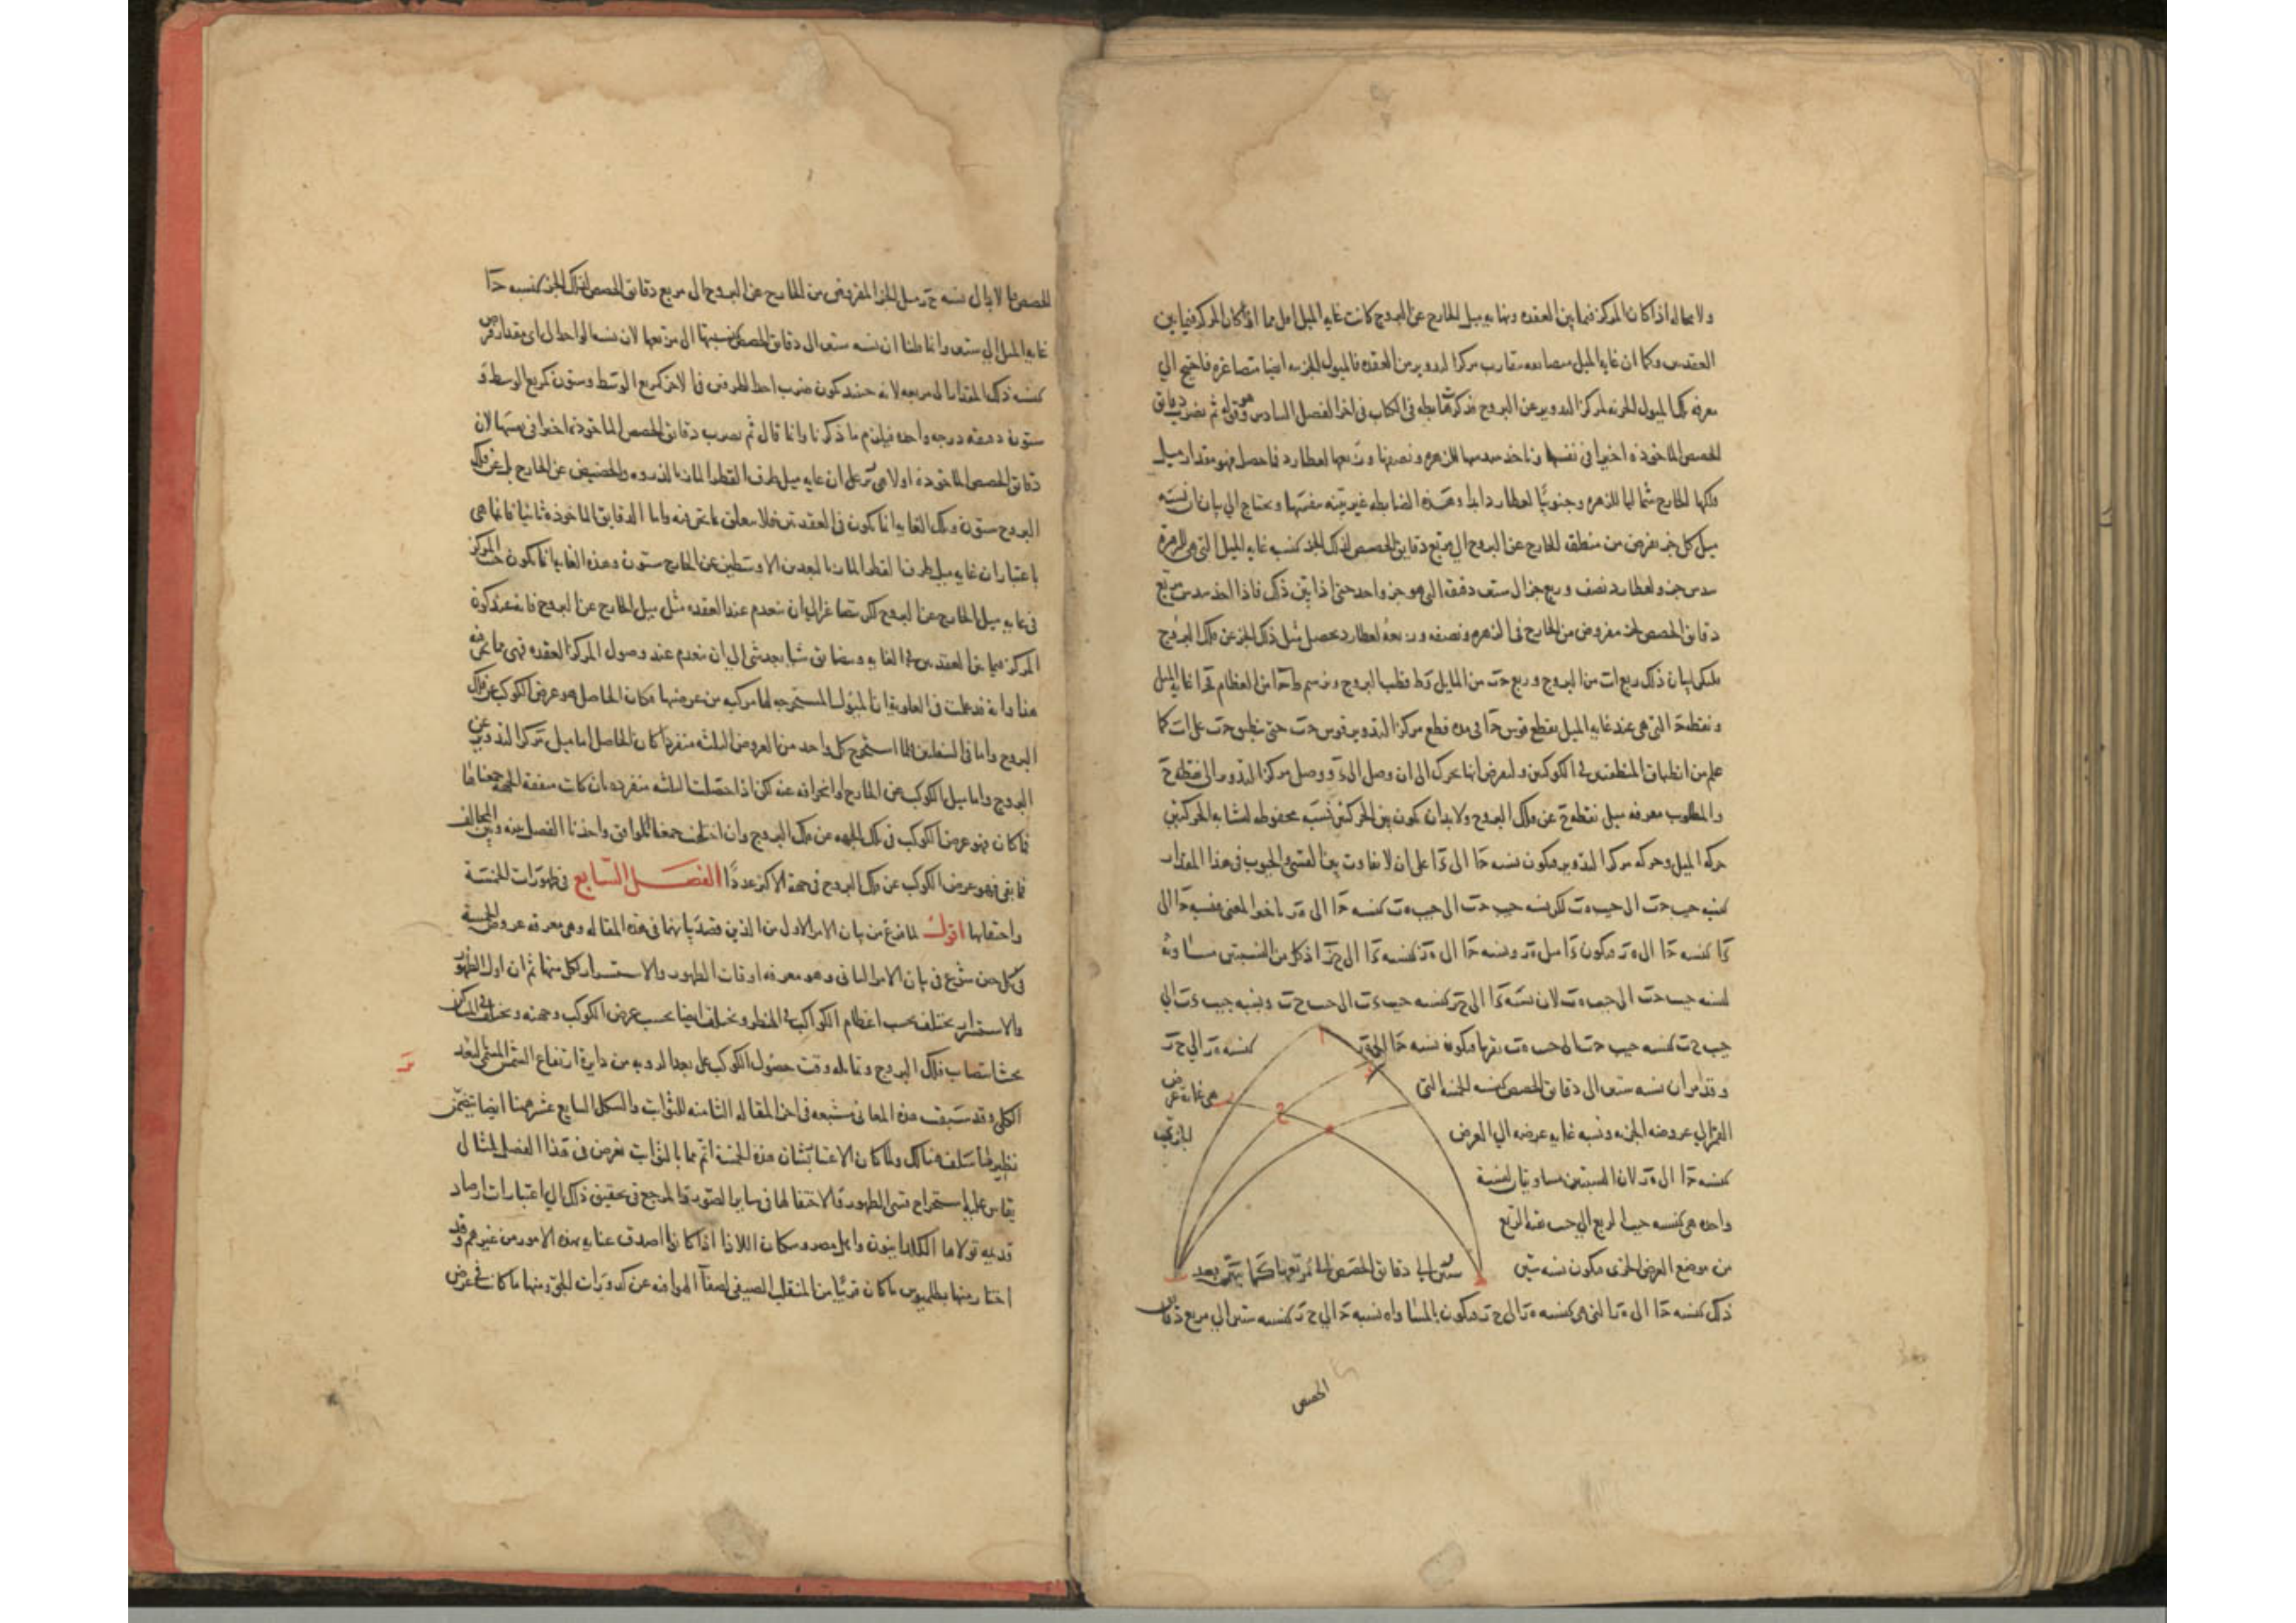 ولا محاله اذا كان المركز فيما بين العقده ونهايه ميل الخارج عن البروج كانت غايه الميل اقل مما اذا كان المركز فيما بين
العقدتين وكما ان غايه الميل متصاعده بتقارب مركز التدوير من العقده فالميول الجزئيه ايضا متصاغره فاحتيج الي
معرفه تلك الميول الجزئيه لمركز التدوير عن البروج فذكر ضابطه في الكتاب في اخر الفصل السادس وهو قوله ثم نضرب دقايق
الحصص الماخوذه اخيرا في نفسها وناخذ سدسها للزهره ونصفها وربعها لعطارد فما حصل فهو مقدار ميل
فلكها الخارج شماليا للزهره وجنوبيا لعطارد ابدا وهذه الضابطه غير بينه بنفسها ويحتاج الي بيان ان نسبه
ميل كل جزء يفرض من منطقه الخارج عن البروج الي مربع دقايق الحصص لذلك الجزء كنسبه غايه الميل التي هي للزهره
سدس جزء ولعطارد نصف وربع جزء الي ستين دقيقه التي هو جزء واحد حتى اذا تبين ذلك فاذا اخذ سدس مربع
دقايق الحصص لجزء مفروض من الخارج في الزهره ونصفه وربعه لعطارد يحصل ميل ذلك الجزء عن فلك البروج
فليكن لبيان ذلك ربع ات من البروج وربع حت من المايل و ط قطب البروج ونرسم ط حا من العظام فحا غايه الميل
ونقطه حا التي هي عند غايه الميل يقطع قوس حا في مده قطع مركز التدوير قوس حت حتى ينطبق حت على ات كما
علم من انطباق المنطقتين في الكوكبين ولنفرض انها تحرك الى ان وصل الى ء ووصل مركز التدوير الى نقطه ح
والمطلوب معرفه ميل نقطه ح عن فلك البروج ولا بد ان يكون بين الحركتين نسبه محفوظه لتشابه الحركتين
حركه الميل وحركه مركز التدوير فيكون نسبه حا الى ءا على ان لا تفاوت بين القسي والجيوب في هذا المقدار
كنسبه جيب حت الى جيب ه ت لكن نسبه جيب حت الى جيب ه ت كنسبه حا الى ه ز
ءا كنسبه حا الى ه ز فيكون ءا مثل ه ز ونسبه حا الى ه ز كنسبه ءا الى ح ز اذ كل من النسبتين مساويه
لنسبه جيب حت الى جيب ه ت لان نسبه ءا الى ح ز كنسبه جيب ءت الى جيب ح ت ونسبه جيب ءت الي
جيب ح ت كنسبه جيب حت الى جيب ه ت بقربها فيكون نسبه حا الى ه ز كنسبه ه ز الي ح ز
وقد مر ان نسبه ستين الى دقايق الحصص كنسبه الخمسه التي هي غايه عرض
القمر الي عروضه الجزئيه ونسبه غايه عرضه الي العرض الجزئي
كنسبه حا الى ه ز لان النسبتين مساويتان لنسبة
واحده هي كنسبه جيب الربع الي جيب بقيه الربع
من موضع العرض الجزئي فيكون نسبه ستين ستين الى دقايق الحصص الى مربعها كما يتبين بعد
ذلك كنسبه حا الى ه ز التي هي كنسبه ه ز الى ح ز فيكون بالمساواه نسبه حا الي ح ز كنسبه ستين الي مربع دقايق
الحصص
الحصص وبالابدال نسبه ح ز ميل الجزء المفروض من الخارج عن البروج الى مربع دقايق الحصص لذلك الجزء كنسبه حا
غايه الميل الي ستين وانما قلنا ان نسبه ستين الى دقايق الحصص كنسبتها الى مربعها لان نسبه الواحد الى اي مقدار فرض
كنسبه ذلك المقدار الى مربعه لانه حينئذ يكون ضرب احد الطرفين في الاخر كمربع الوسط وستون كمربع الوسط و
ستون دقيقه درجه واحده فيلزم ما ذكرنا وانما قال ثم نضرب دقايق الحصص الماخوذه اخيرا في نفسها لان
دقايق الحصص الماخوذه اولا هي على ان غايه ميل طرف القطر المار بالذروه والحضيض عن الخارج بل عن فلك
البروج ستون وتلك الغايه انما يكون في العقدتين فلا معلق بما نحن فيه واما الدقايق الماخوذه ثانيا فانها هي
باعتبار ان غايه ميل طرف القطر المار بالبعدين الاوسطين عن الخارج ستون وهذه الغايه انما يكون حيث المركز
في غايه ميل الخارج عن البروج ثم يتصاغر الى ان ينعدم عند العقده مثل ميل الخارج عن البروج فانه عند كون
المركز فيما بين العقدتين في الغايه ويتضايق شيا بعد شي الى ان ينعدم عند وصول المركز العقده فهي مما نحن فيه
هذا وانه قد علمت في العلويه ان الميول المستخرجه لها مركبه من عرضيها فكان الحاصل هو عرض الكوكب عن فلك
البروج واما في السفليين فلما استخرج كل واحد من العروض الثلثه منفردا كان الحاصل اما ميل مركز التدوير عن
البروج واما ميل الكوكب عن الخارج او انحرافه عنه لكن اذا حصلت الثلثه منفرده فان كانت متفقه الجهه جمعناها
فما كان فهو عرض الكوكب في تلك الجهه من فلك البروج وان اختلفت جمعنا الموافق واخذنا الفصل بينه وبين المخالف
فما بقي فهو عرض الكوكب عن فلك البروج في جهة الاكثر عددا الفصل السابع في ظهورات الخمسة
واختفايها اقول لما فرغ من بيان الامر الاول من الذين قصد بيانهما في هذه المقاله وهي معرفه عروض الخمسة
في كل حين شرع في بيان الامر الثاني وهو معرفه اوقات الظهور والاستسرار لكل منها ثم ان اول الظهور
والاستسرار يختلف بحسب اعظام الكواكب في المنظر ويختلف ايضا بحسب عرض الكوكب وجهته ويختلف في المساكن
بحسب انتصاب فلك البروج وتمايله وقت حصول الكوكب على بعد الرويه من دايرة ارتفاع الشمس المسمى البعد
الكلي وقد سبقت هذه المعاني مشبعه في اخر المقاله الثامنه للثوابت والشكل السابع عشر ههنا ايضا
نظير لما سلف هنالك ولما كان الاعتنا بشان هذه الخمسة اتم مما بالثوابت نعرض في هذا الفصل لمثال
يقاس عليه استخراج قسي الظهور والاختفا لها في ساير الصور والمرجع في تحقيق ذلك الي اعتبارات ارصاد
قديمه تولاها الكلدانيون واهل مصر وسكان اللاذا اذ كانوا اصدق عنايه بهذه الامور من غيرهم وقد
اختار منها بطلميوس ما كان قريبا من المنقلب الصيفي لصفا الهوا فيه عن كدورات الجو ومنها ما كانت في عرض